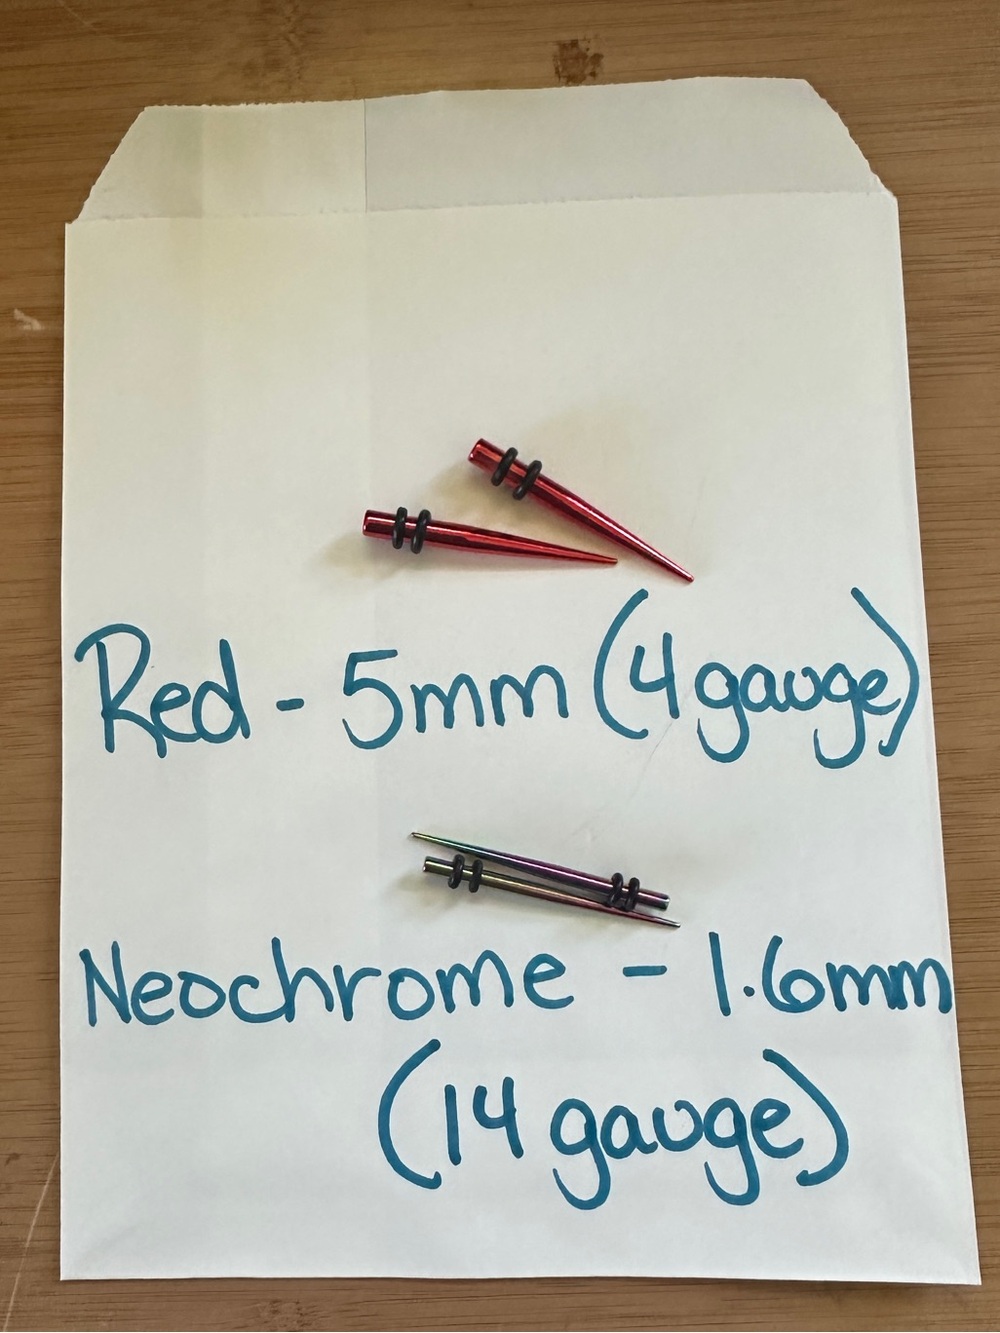 Red - 5mm (4 gauge)
Neochrome - 1.6mm
(14 gauge)